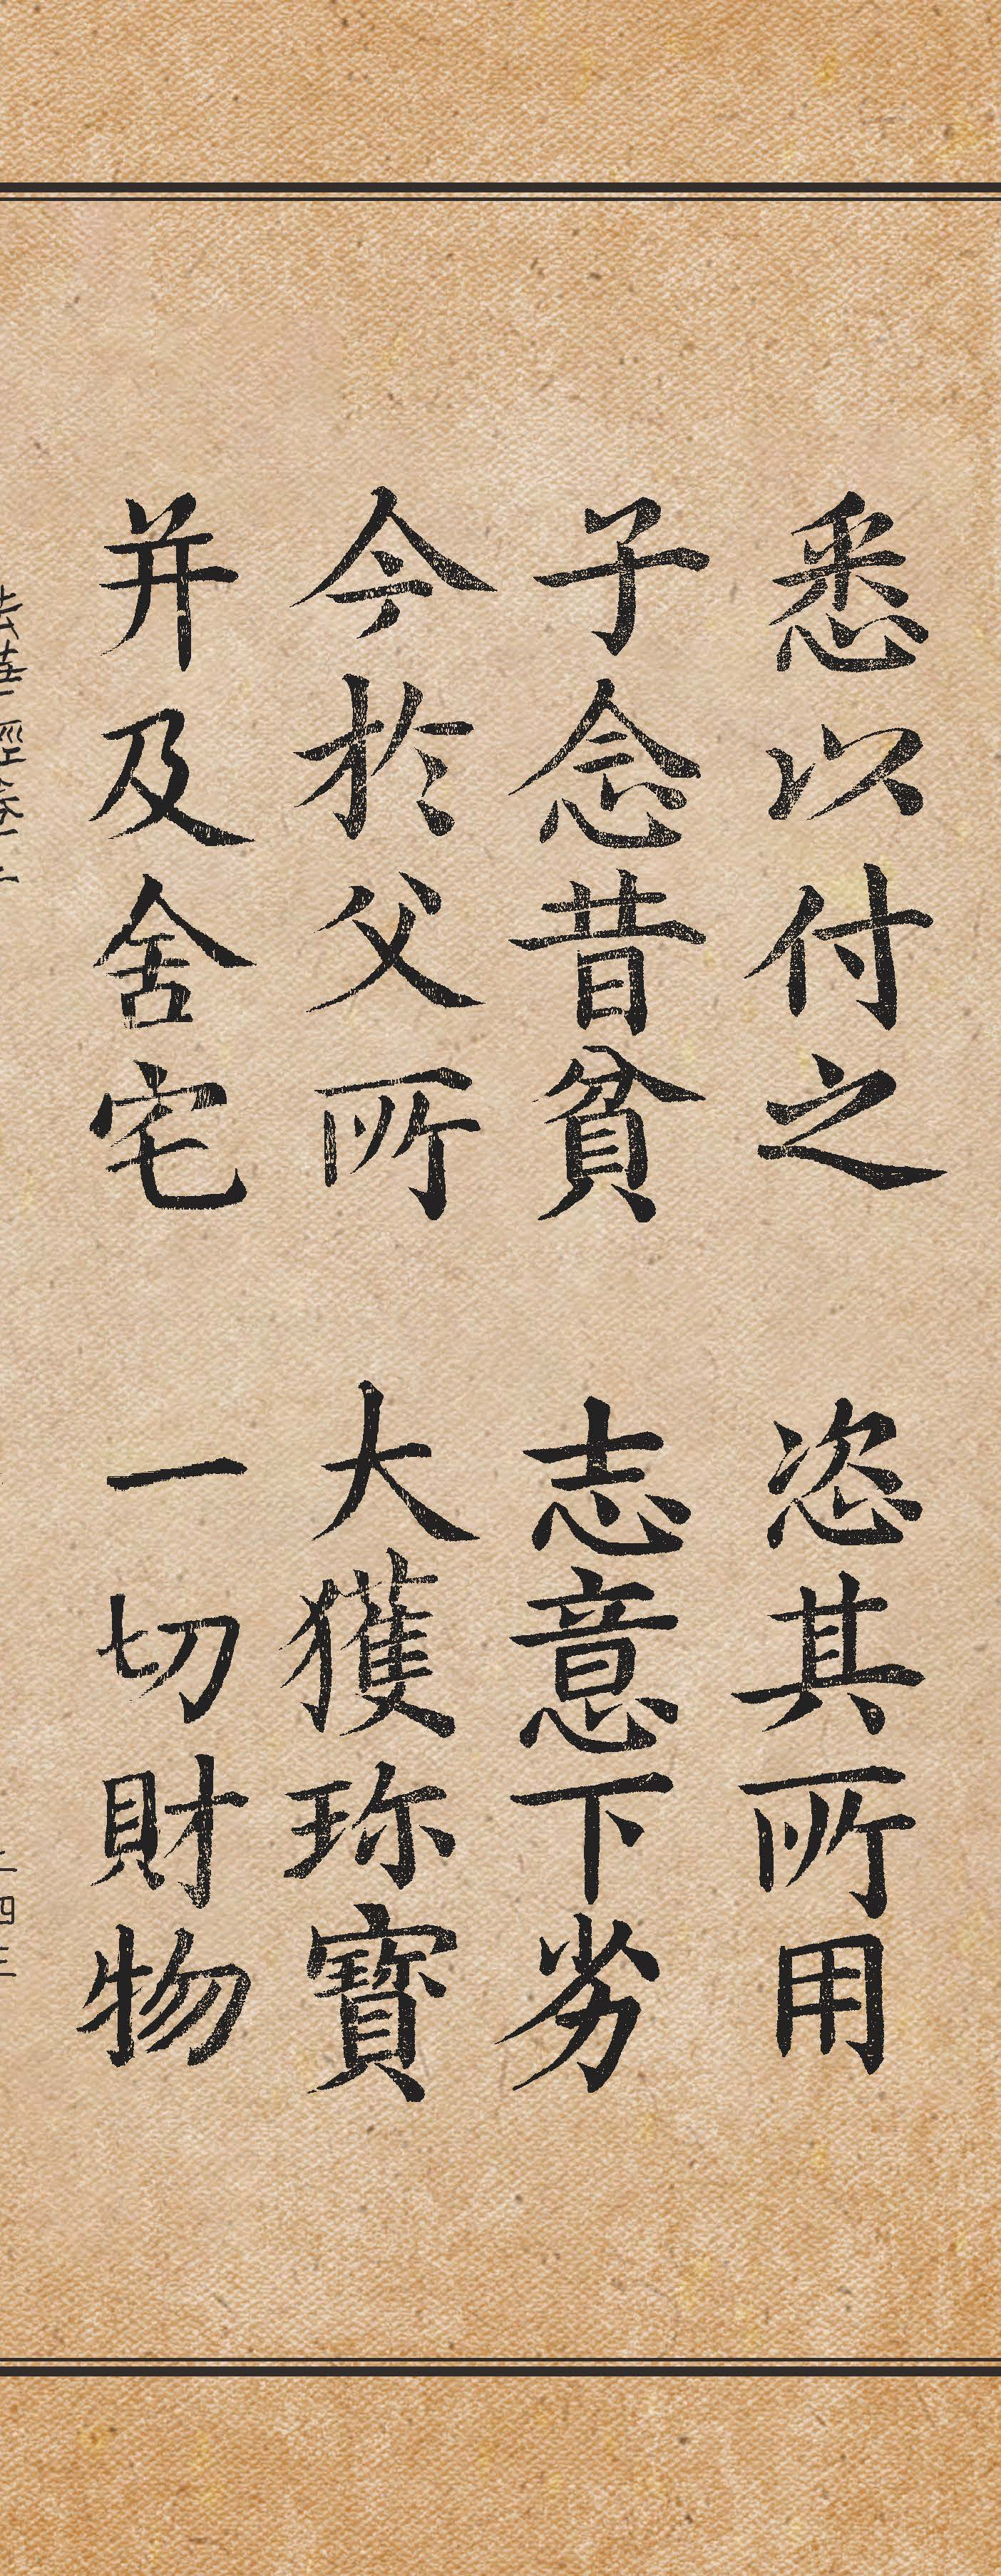 悉以付之 恣其所用
子念昔貧 志意下劣
今於父所 大獲珎寶
并及舍宅 一切財物